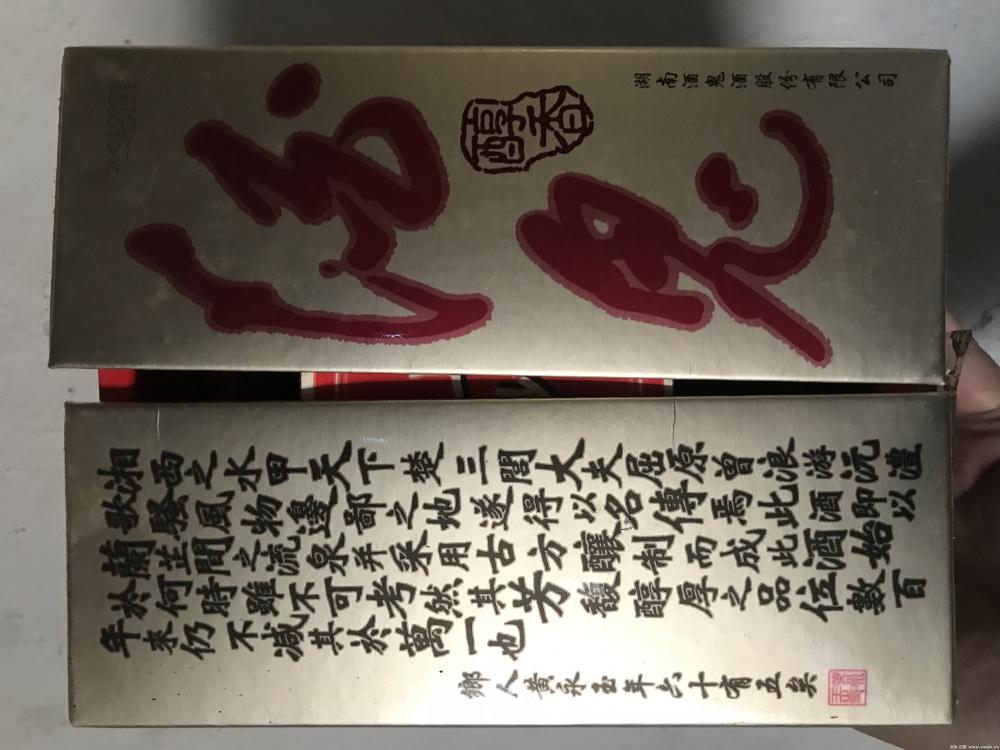 湖南酒鬼酒股份有限公司
酒鬼
醇香
湘西之水甲天下楚三閭大夫屈原曾浪游沅澧
歌騷風物邊鄙之地遂得以名傳焉此酒即以
蘭芷間之流泉并采用古方釀制而成此酒始
於何時雖不可考然其芳馥醇厚之品位數百
年來仍不減其於萬一也
鄉人黃永玉年六十有五矣